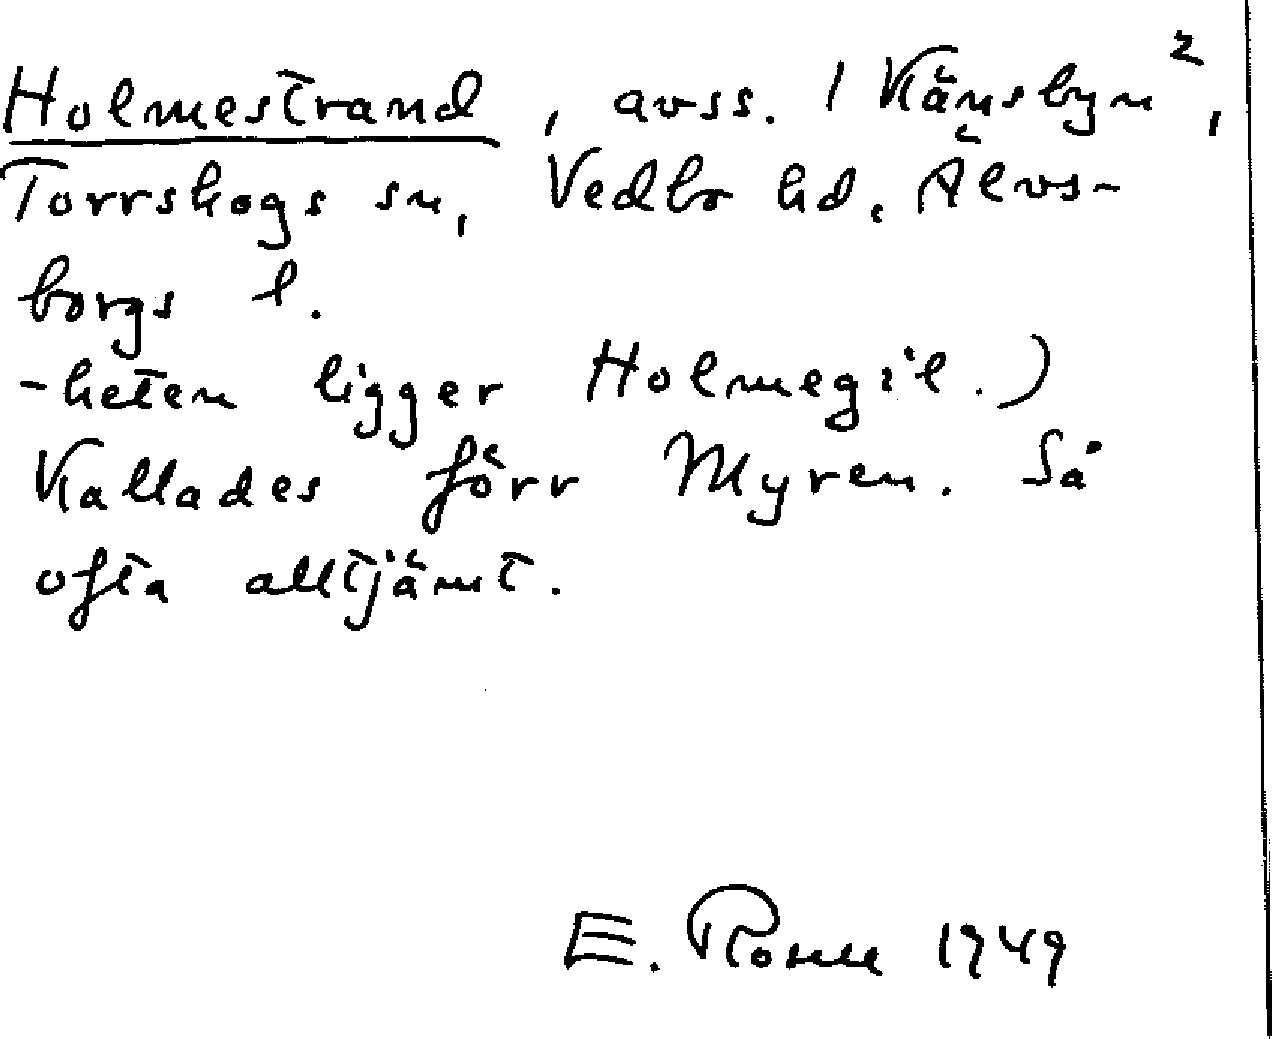 Holmestrand, avss. 1 Känsbyn²,
Torrskogs sn, Vedbo hd, Älvs-
borgs l.
-heten ligger Holmegil.)
Kallades förr Myren. Så
ofta alltjämt.
E. Rosell 1949